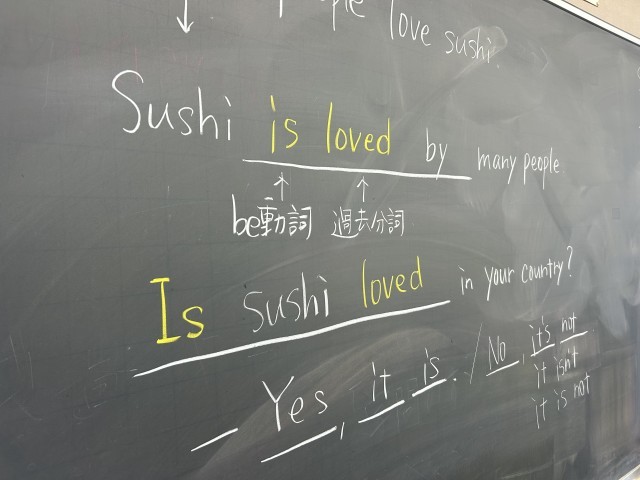 people love sushi.
Sushi is loved by many people
be動詞 過去分詞
Is sushi loved in your country?
Yes, it is. / No, it's not
it isn't
it is not